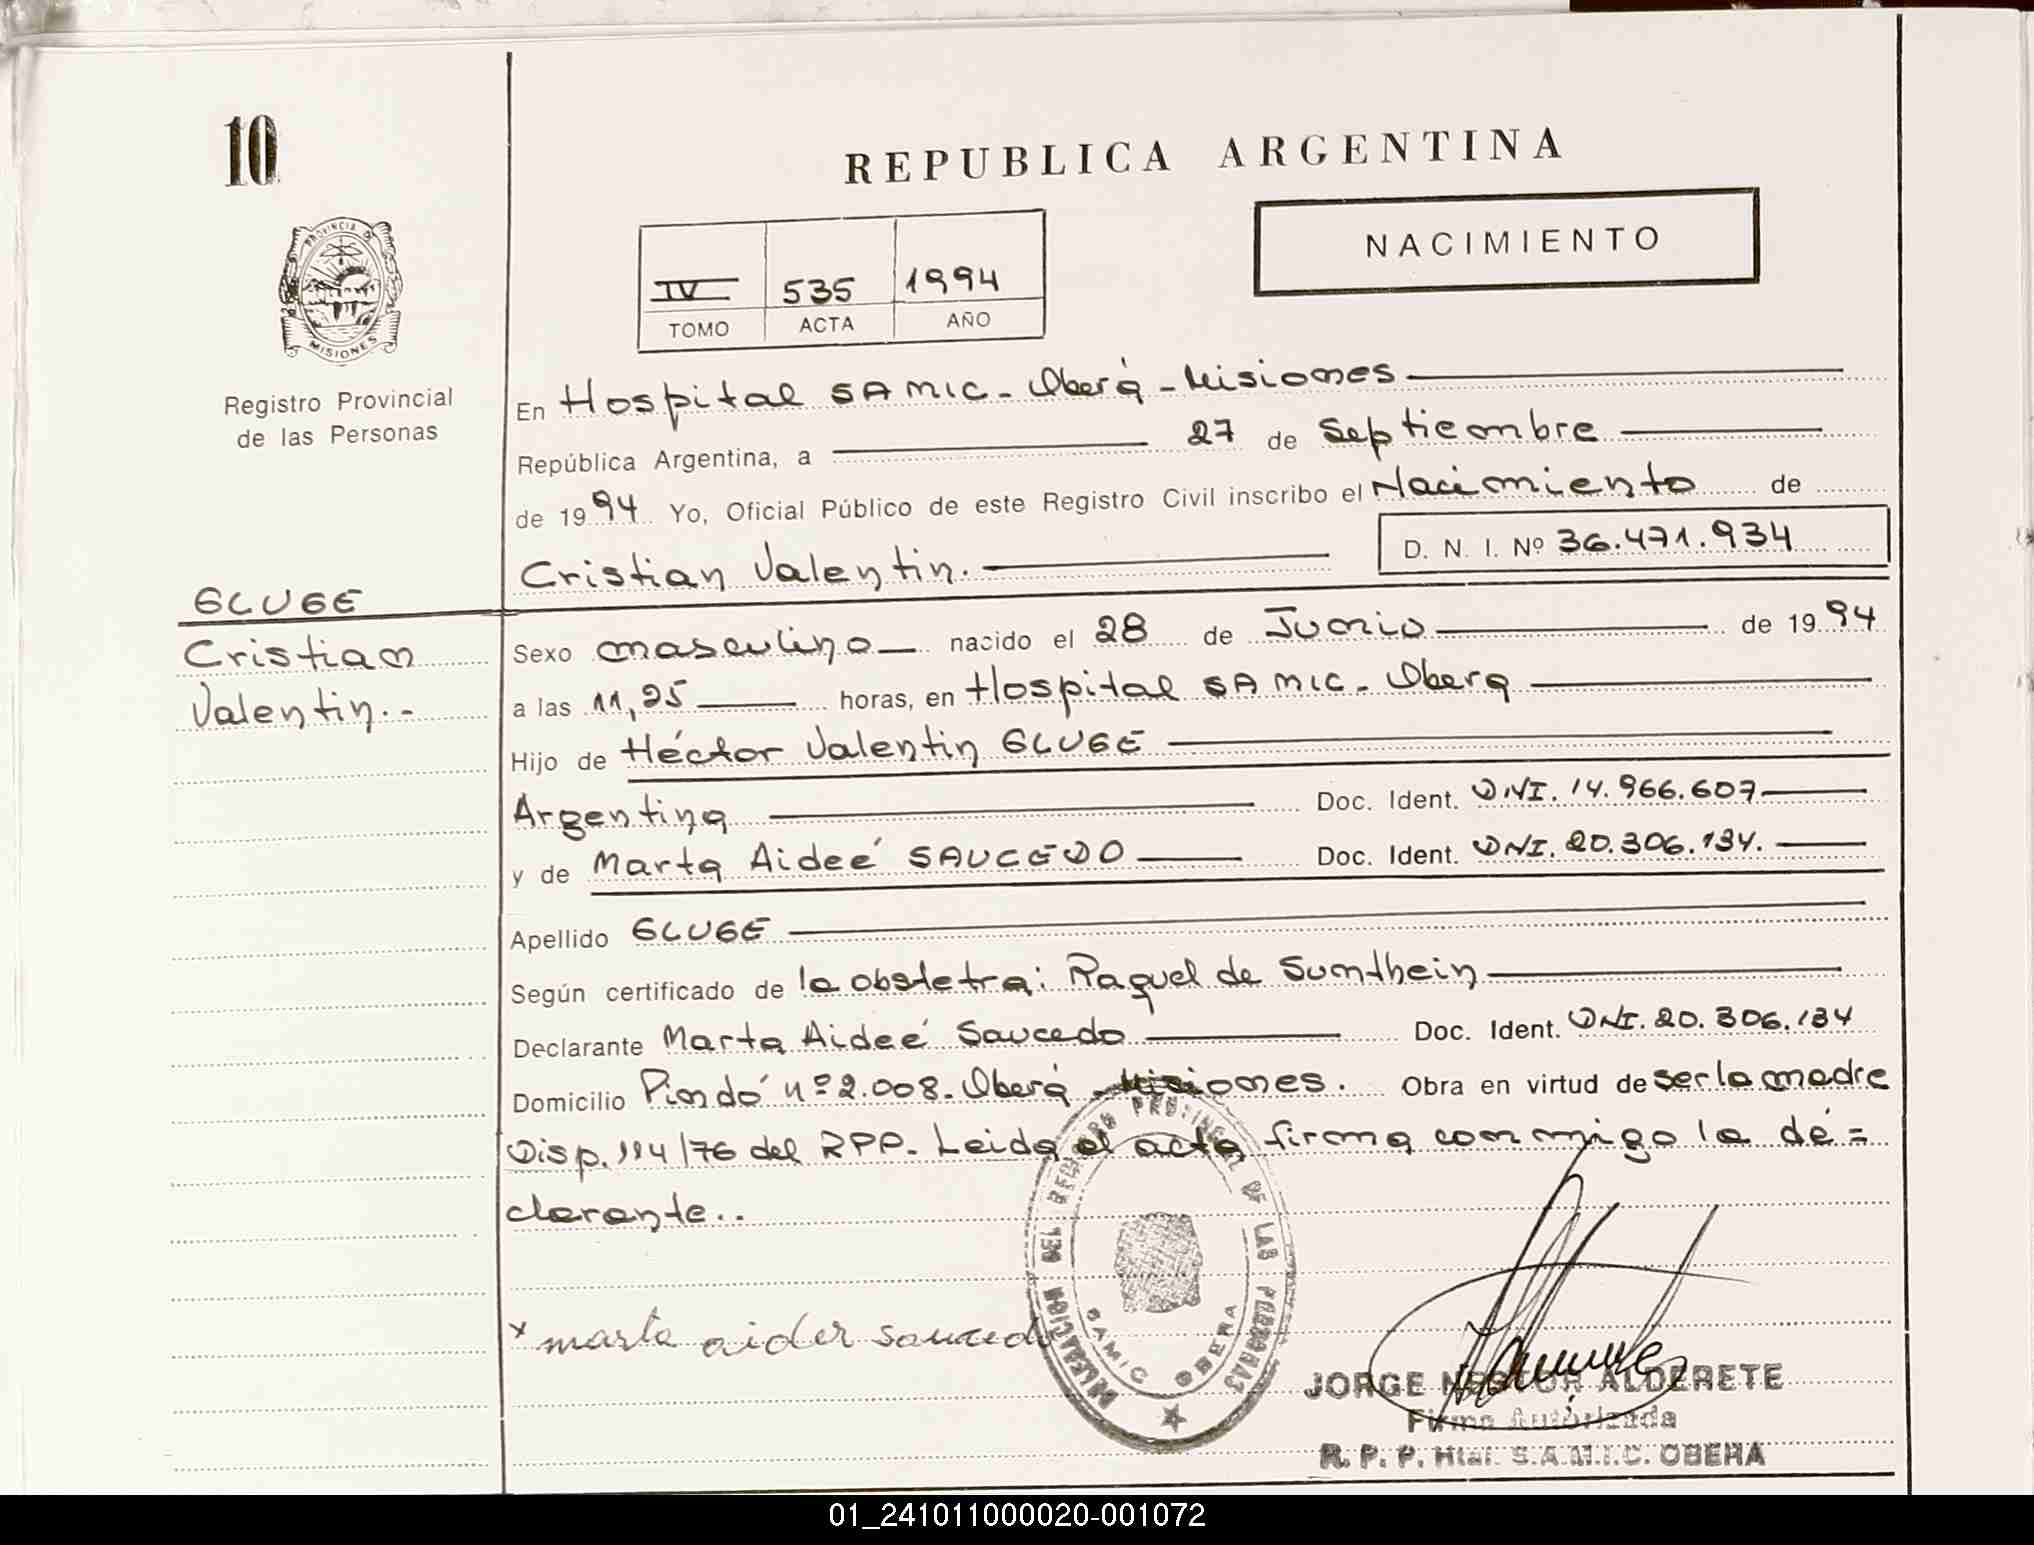 10
REPUBLICA ARGENTINA
NACIMIENTO
IV 535 1994
TOMO ACTA AÑO
PROVINCIA DE
MISIONES
Registro Provincial
de las Personas
En Hospital SAMIC - Oberá - Misiones
República Argentina, a 27 de Septiembre
de 1994 Yo, Oficial Público de este Registro Civil inscribo el Nacimiento de
Cristian Valentin. D. N. I. Nº 36.471.934
GLUGE
Cristian
Valentin.-
Sexo masculino nacido el 28 de Junio de 1994
a las 11,25 horas, en Hospital SAMIC - Obera
Hijo de Héctor Valentin GLUGE
Argentina Doc. Ident. DNI. 14.966.607
y de Marta Aideé SAUCEDO Doc. Ident. DNI. 20.306.134.
Apellido GLUGE
Según certificado de la obstetra: Raquel de Sumthein
Declarante Marta Aideé Saucedo Doc. Ident. DNI. 20.306.134
Domicilio Pindó nº 2.008. Oberá - Misiones. Obra en virtud de ser la madre
Disp. 114/76 del RPP. Leida el acta firma conmigo la de=
clarante..
x marta aider saucedo
DELEGACION DEL REGISTRO PROVINCIAL DE LAS PERSONAS
SAMIC OBERA
JORGE NESTOR ALDERETE
Firma Autorizada
R. P. P. Htal. S.A.M.I.C. OBERA
01_241011000020-001072